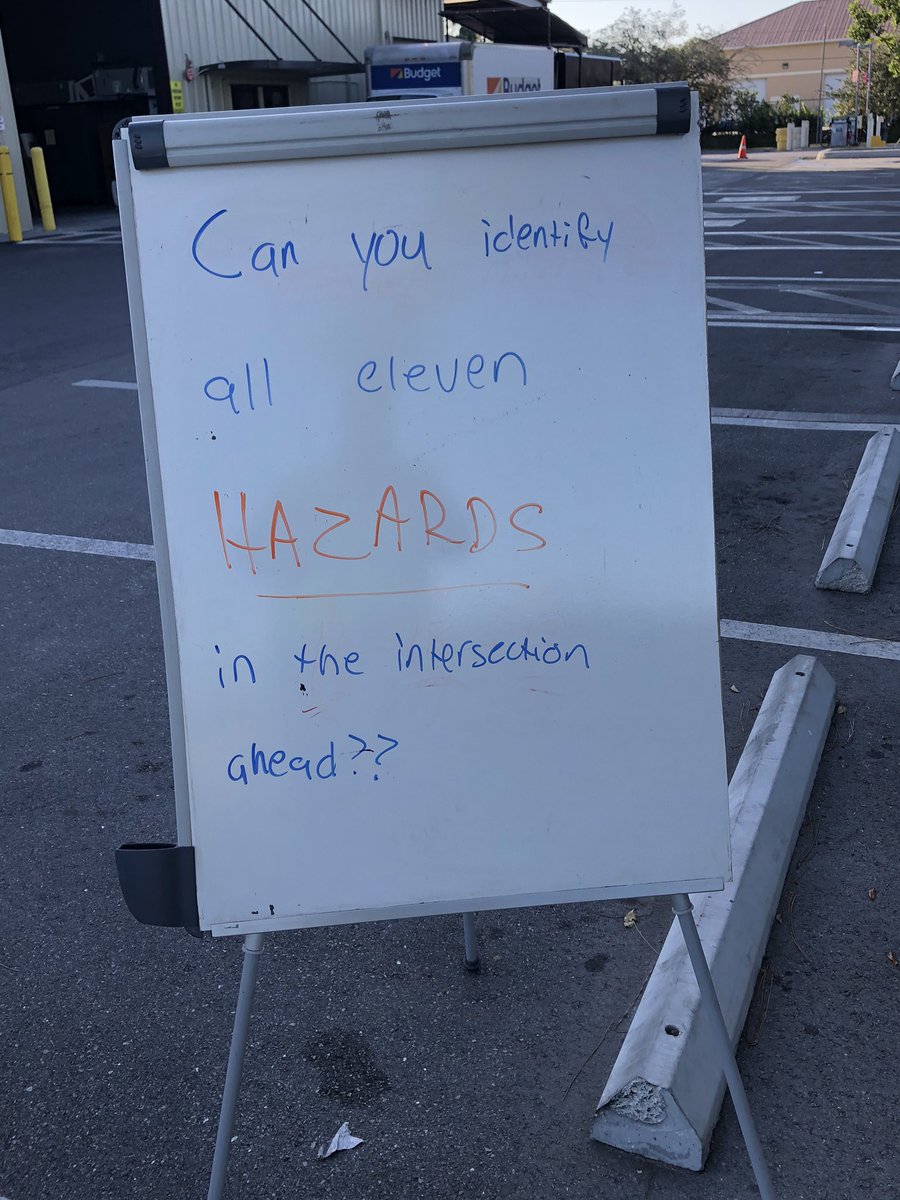 Budget
Budget
Can you identify
all eleven
HAZARDS
in the intersection
ahead??